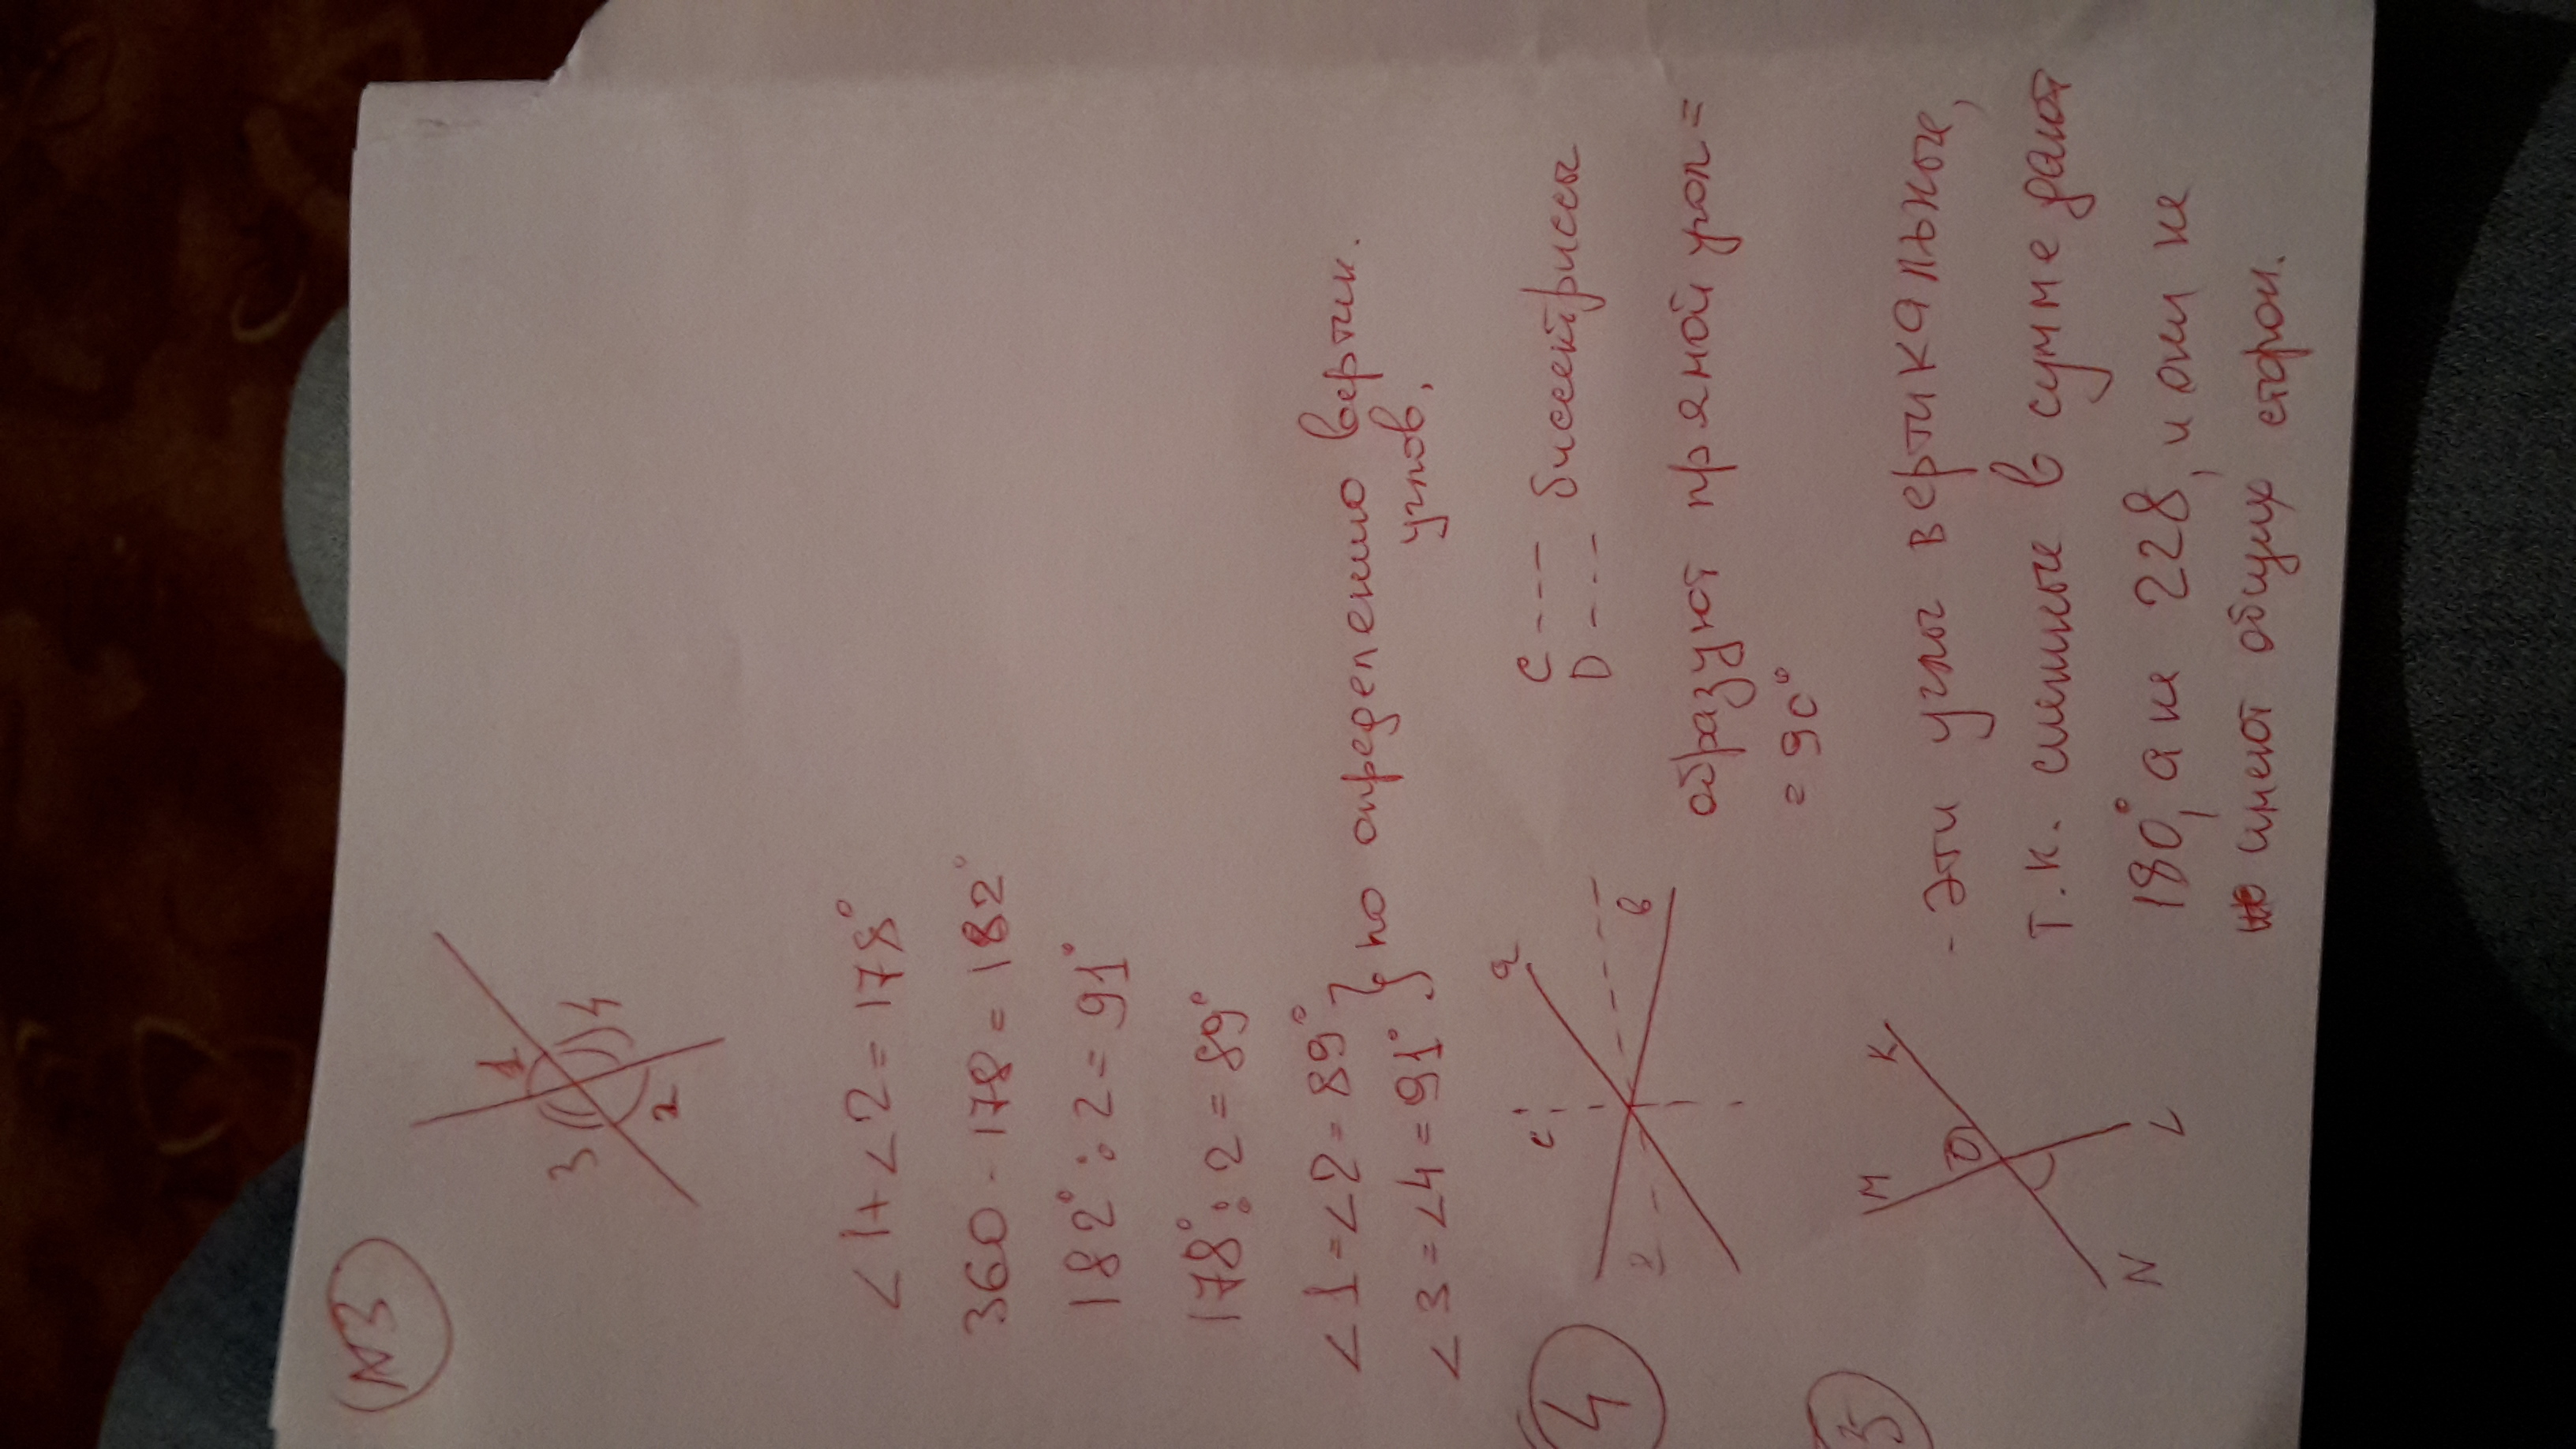 №3
1
3
4
2
<1+<2=178°
360-178=182°
182°:2=91°
178°:2=89°
<1=<2=89° } по определению вертик.
<3=<4=91° } углов.
4
c
a
в
C --- биссектриссы
D ---
образуют прямой угол =
= 90°
5
M
K
O
N
L
- Эти углы вертикальные,
т.к. смежные в сумме дают
180°, а не 228, и они не
имеют общих сторон.